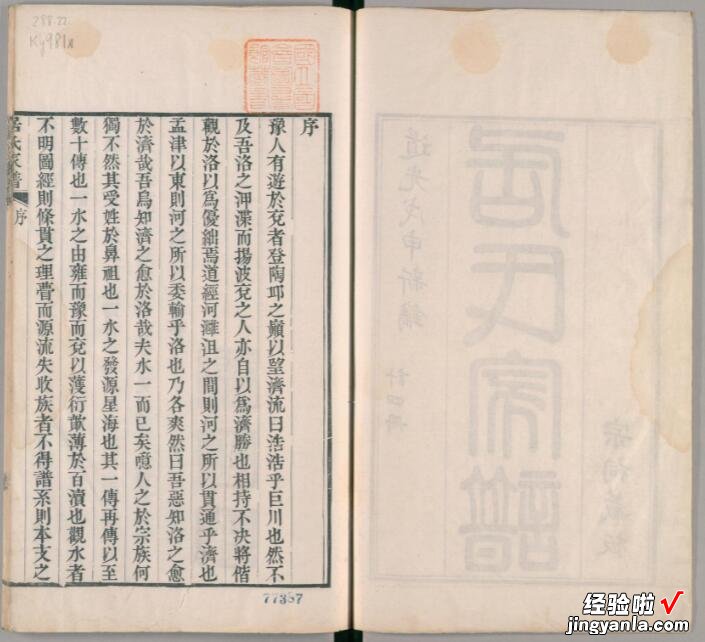 288.22
Ky981
序
豫人有遊於兗者登陶邱之巔以望濟流曰浩浩乎巨川也然不
及吾洛之渒渫而揚波兗之人亦自以為濟勝也相持不決將偕
觀於洛以為優絀焉道經河灉沮之間則河之所以貫通乎濟也
孟津以東則河之所以委輸乎洛也乃各爽然曰吾惡知洛之愈
於濟哉吾烏知濟之愈於洛哉夫水一而已矣噫人之於宗族何
獨不然其受姓於鼻祖也一水之發源星海也其一傳再傳以至
數十傳也一水之由雍而豫而兗以蔓衍歕薄於百瀆也觀水者
不明圖經則條貫之理瞢而源流失收族者不得譜系則本支之
居氏家譜
序
77357
道光戊申新鐫
計四冊
居氏家譜
宗祠藏板
经验啦√
jingyanla.com